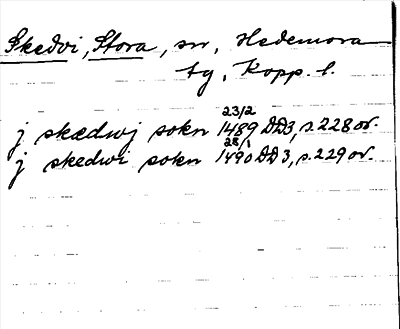 Skedvi, Stora, sn, Hedemora
tg, Kopp. l.
23/2
j skædwj sokn 1489 DD3, s. 228 or.
28/1
j skedwi sokn 1490 DD3, s. 229 or.